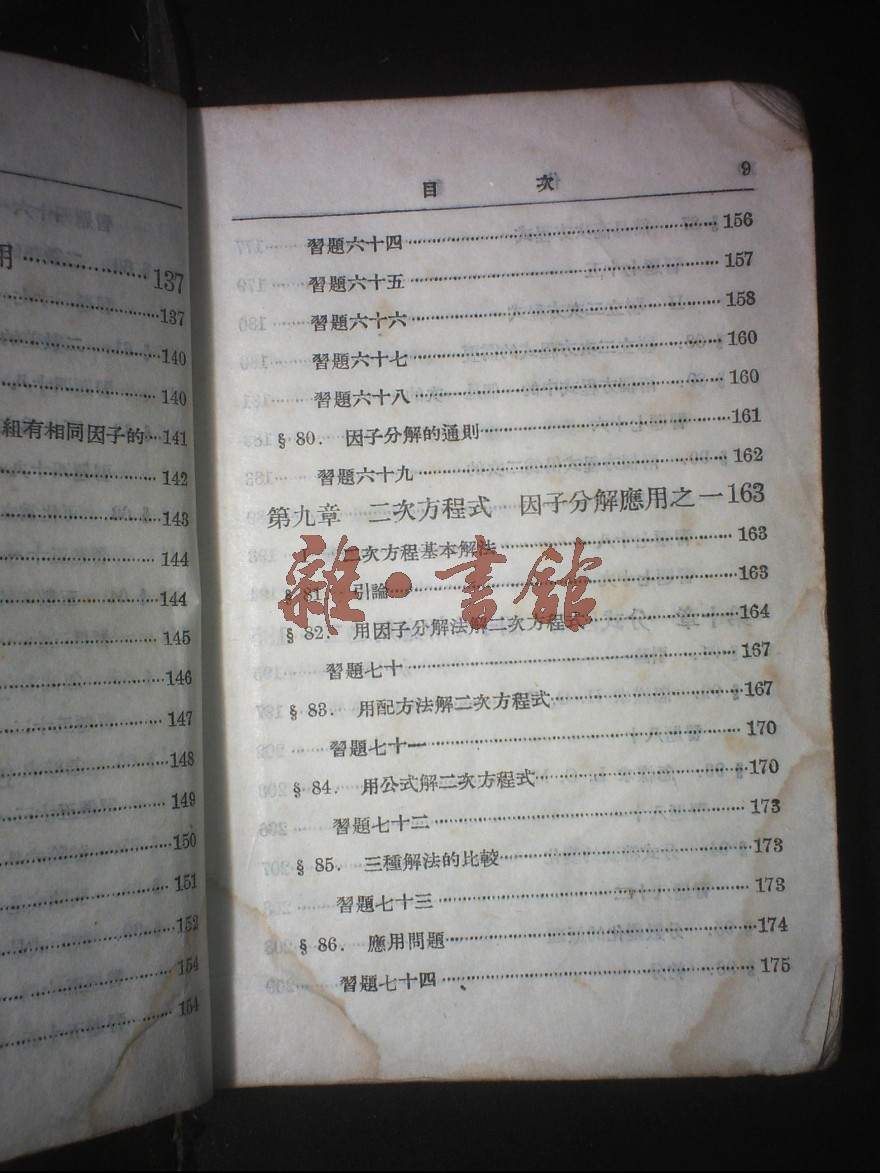 用……137
……137
……140
……140
組有相同因子的…141
……142
……143
……144
……144
……145
……146
……147
……148
……149
……150
……151
……152
……154
……154
目 次 9
習題六十四……156
習題六十五……157
習題六十六……158
習題六十七……160
習題六十八……160
§ 80. 因子分解的通則……161
習題六十九……162
第九章 二次方程式 因子分解應用之一163
二次方程基本解法……163
§ 81. 引論……163
§ 82. 用因子分解法解二次方程式……164
習題七十……167
§ 83. 用配方法解二次方程式……167
習題七十一……170
§ 84. 用公式解二次方程式……170
習題七十二……173
§ 85. 三種解法的比較……173
習題七十三……173
§ 86. 應用問題……174
習題七十四……175
雜·書館